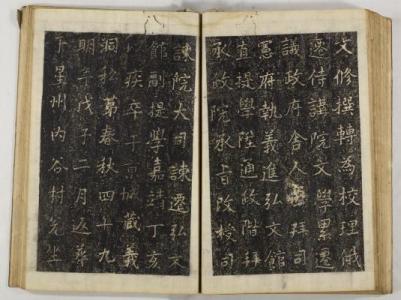 文修撰轉為校理俄
遷侍講院文學累遷
議政府舍人拜司
憲府執義進弘文館
直提學陞通政階拜
承政院承旨改授司
諫院大司諫遷弘文
館副提學嘉靖丁亥
以疾卒于京城藏義
洞私第春秋四十九
明年戊子二月返葬
于星州內谷村先